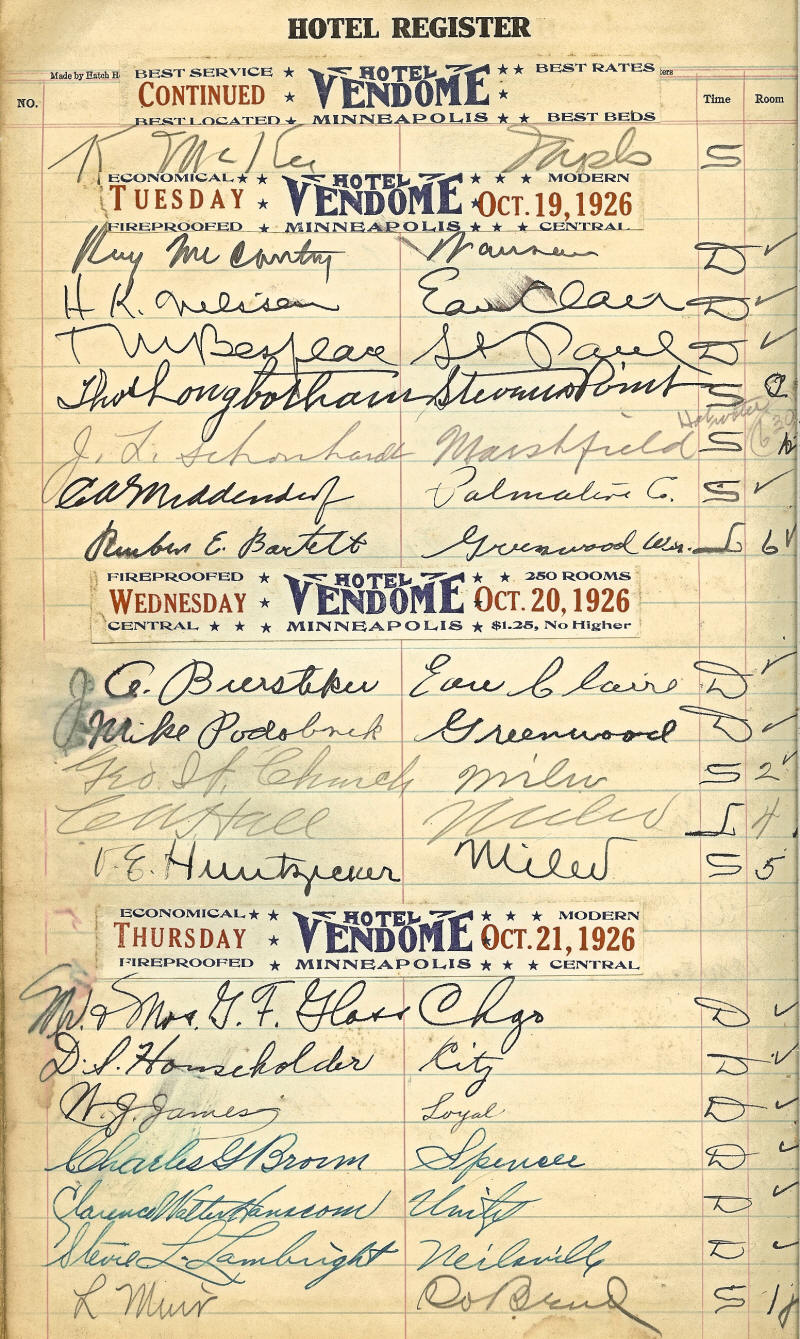 HOTEL REGISTER
NO. Made by Hatch H Time Room
BEST SERVICE ★ HOTEL ★★ BEST RATES
CONTINUED ★ VENDOME ★
BEST LOCATED ★ MINNEAPOLIS ★★ BEST BEDS
K McKee Mpls S
ECONOMICAL ★★ HOTEL ★★★ MODERN
TUESDAY ★ VENDOME ★ OCT. 19, 1926
FIREPROOFED ★ MINNEAPOLIS ★★★ CENTRAL
Ray McCarthy Wausau D ✓
H K. Neilsen Eau Clair D ✓
St Paul D ✓
Thos Longbotham Stevens Point S 2
Hot water 6 30
J. L. Schonhardt Marshfield S
C A Middendorf Palmolive C. S ✓
Reuben E. Bartell Greenwood Wis. L 6 ✓
FIREPROOFED ★ HOTEL ★★ 250 ROOMS
WEDNESDAY ★ VENDOME ★ OCT. 20, 1926
CENTRAL ★★★ MINNEAPOLIS ★ $1.25, No Higher
J. A. Biersteker Eau Claire D ✓
Mike Podobnik Greenwood D ✓
Geo. H. Church Milw S 2
C A Hall Milw L 4
V. E. Huntzicker Milw S 5
ECONOMICAL ★★ HOTEL ★★★ MODERN
THURSDAY ★ VENDOME ★ OCT. 21, 1926
FIREPROOFED ★ MINNEAPOLIS ★★★ CENTRAL
Mr. & Mrs. G. F. Glass Chgo D ✓
D. S. Householder City D ✓
W. J. James Loyal D ✓
Charles G Broom Spencer D ✓
Clarence Walter Hanscom Unity D ✓
Stevie L. Lambright Neilsville D ✓
L Muir S